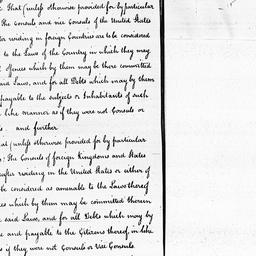 That (unless otherwise provided for by particular
The Consuls and vice Consuls of the United States
residing in foreign Countries are to be considered
to the Laws of the Country in which they may
offences which by them may be there committed
said Laws, and for all Debts which may by them
payable to the subjects or Inhabitants of such
like manner as if they were not Consuls or
and further
(unless otherwise provided for by particular
The Consuls of foreign Kingdoms and States
residing in the United States or either of
be considered as amenable to the Laws thereof
which by them may be committed therein
said Laws, and for all Debts which may by
and payable to the Citizens thereof, in like
if they were not Consuls or Vice Consuls